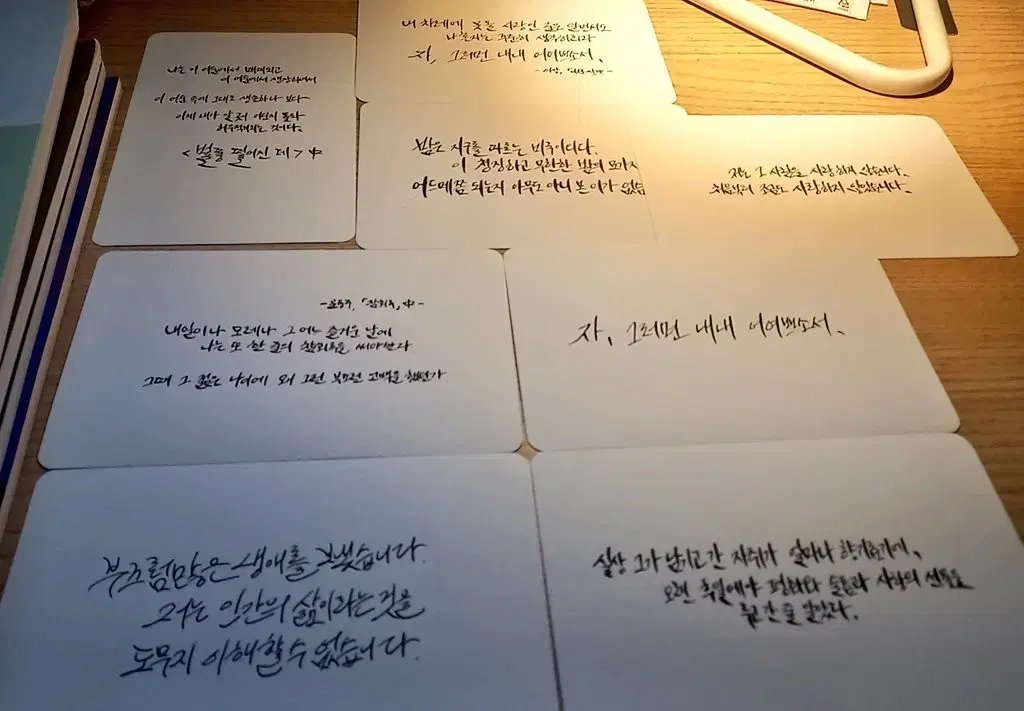 나는 이 어둠에서 배태되고
이 어둠에서 생장하여서
이 어둠 속에 그대로 생존하나 보다
이제 내가 갈 곳이 몰라
허우적거리는 것이다.
<별똥 떨어진 데> 中
내 차례에 못 올 사랑인 줄은 알면서도
나 혼자는 꾸준히 생각하리라
자, 그러면 내내 어여쁘소서.
밤은 지구를 따르는
이 청징하고 무한한 밤의
어드메쯤 되는지 아무도 아니 본 이가 없습
저는 그 사람을 사랑하지 않습니다.
처음부터 조금도 사랑하지 않았습니다.
-윤동주, 「참회록」 中-
내일이나 모레나 그 어느 즐거운 날에
나는 또 한 줄의 참회록을 써야한다
그때 그 젊은 나이에 왜 그런 부끄런 고백을 했던가
자, 그러면 내내 어여쁘소서.
부끄럼많은 생애를 보냈습니다.
저는 인간의 삶이라는 것을
도무지 이해할 수 없습니다.
실상 그가 남기고 간 자취가 얼마나
오랜 후일에야 평화와 슬픔과 사랑의 선물을
줄 알았다.